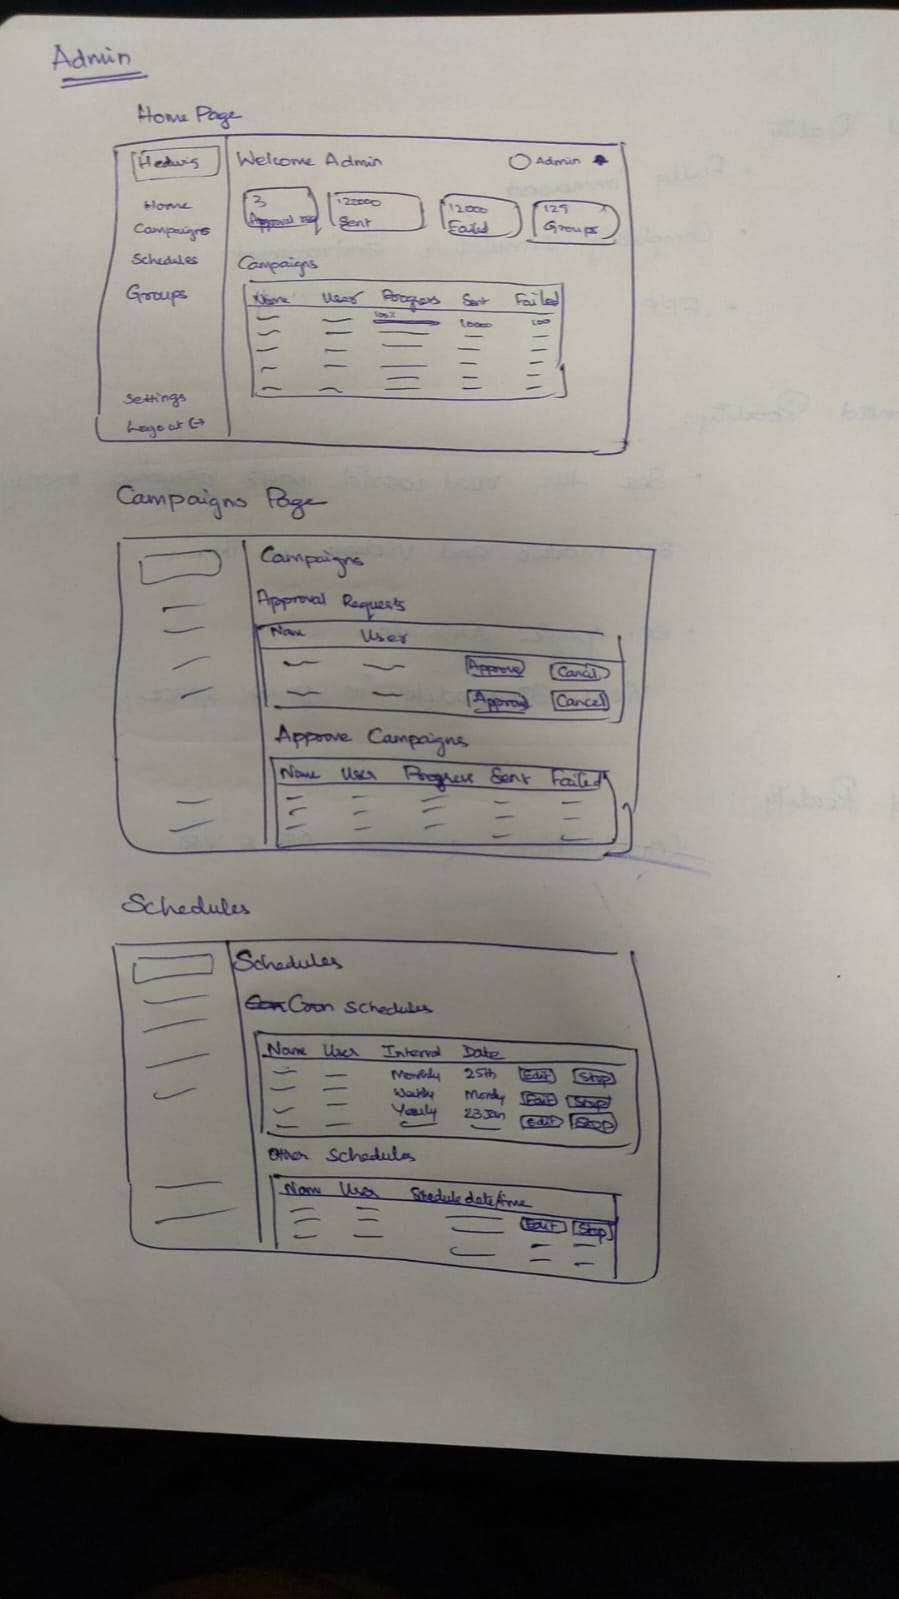 Admin
Home Page
Hedwig
Welcome Admin
Admin
Home
Campaigns
Schedules
Groups
Settings
Logout
3
Approval
120000
Sent
12000
Failed
129
Groups
Campaigns
Name User Progress Sent Failed
100% 10000 100
Campaigns Page
Campaigns
Approval Requests
Name User
Approve Cancel
Approve Cancel
Approve Campaigns
Name User Progress Sent Failed
Schedules
Schedules
Cron Schedules
Name User Interval Date
Monthly 25th Edit Stop
Weekly Monday Edit Stop
Yearly 23 Jan Edit Stop
Other Schedules
Name User Schedule date/time
Edit Stop